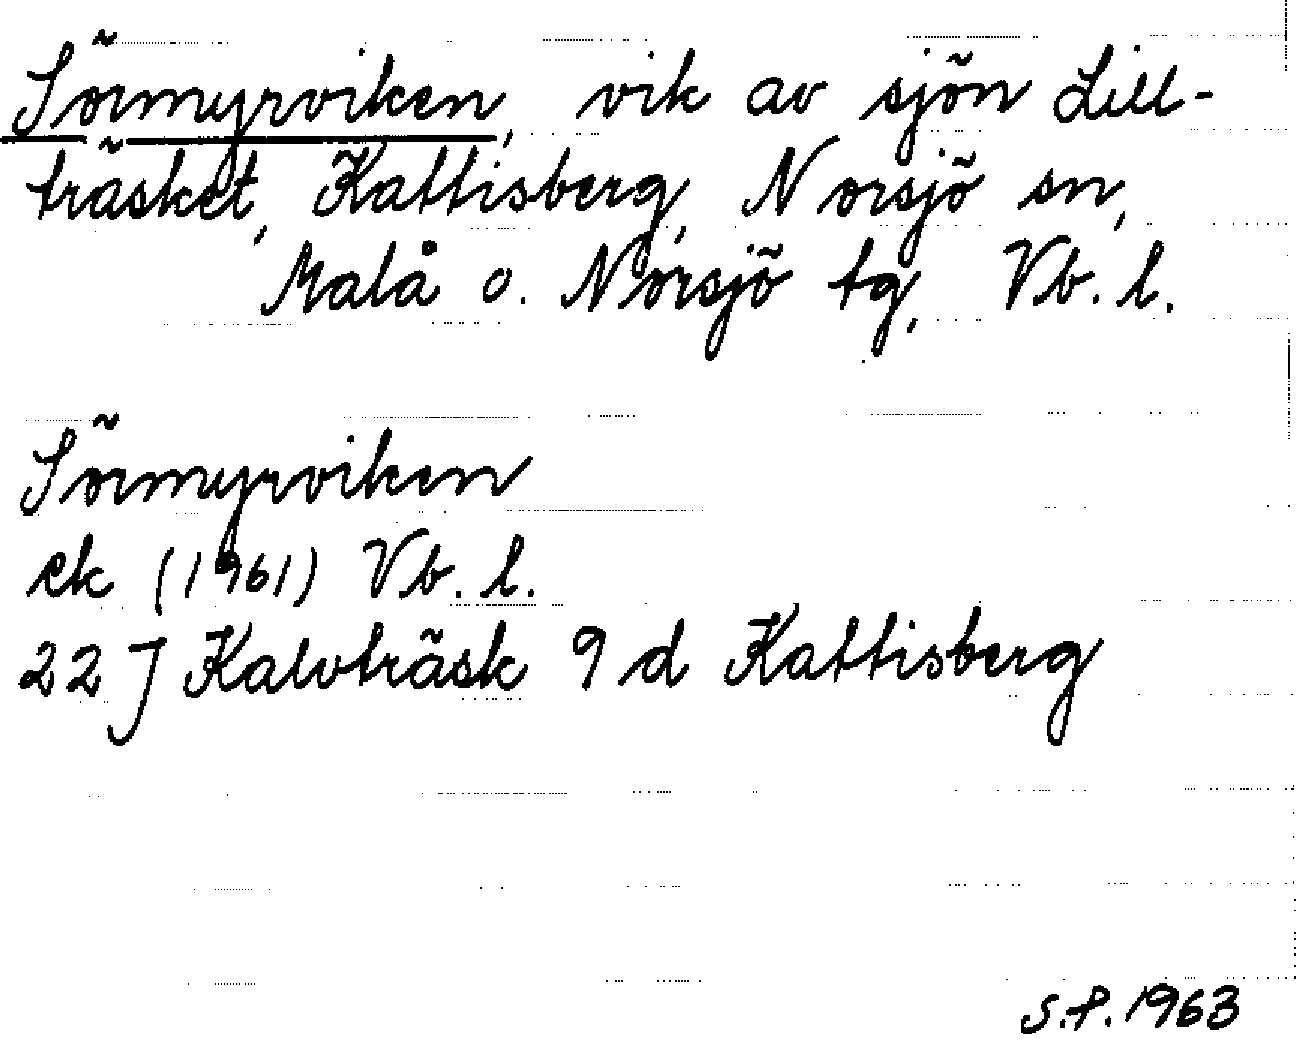 Sörmyrviken, vik av sjön Lill-
träsket, Kattisberg, Norsjö sn,
Malå o. Norsjö tg, Vb. l.
Sörmyrviken
ek (1961) Vb. l.
22 J Kalvträsk 9 d Kattisberg
S.P. 1963